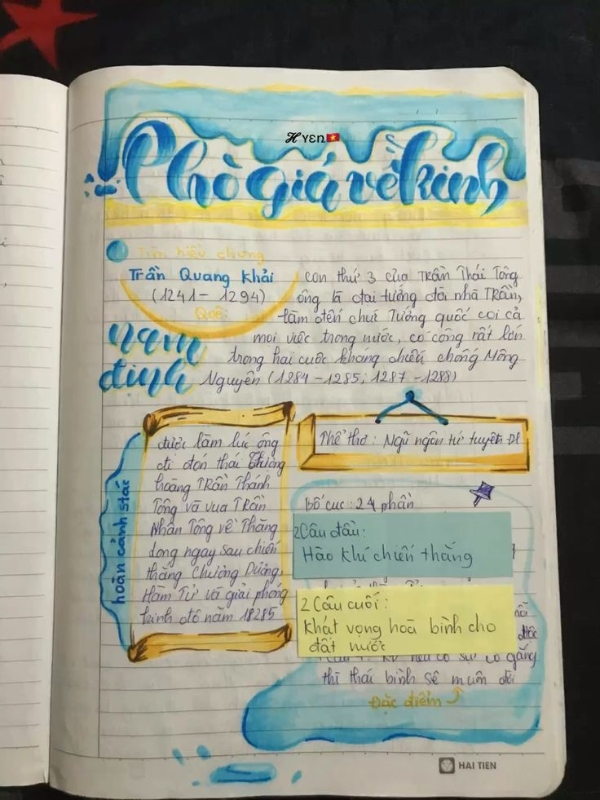 Hyen
Phò giá về kinh
Tìm hiểu chung
Trần Quang Khải
(1241 - 1294)
Quê
nam
định
con thứ 3 của Trần Thái Tông
ông là đại tướng đời nhà Trần,
làm đến chức Tướng quốc coi cả
mọi việc trong nước, có công rất lớn
trong hai cuộc kháng chiến chống Mông
Nguyên (1284 - 1285, 1287 - 1288)
hoàn cảnh stác
được làm lúc ông
đi đón thái thượng
hoàng Trần Thánh
Tông và vua Trần
Nhân Tông về Thăng
long ngay sau chiến
thắng Chương Dương,
Hàm Tử và giải phóng
kinh đô năm 18285
Thể thơ: Ngũ ngôn tứ tuyệt ĐL
Bố cục: 2 phần
2 Câu đầu:
Hào khí chiến thắng
2 Câu cuối:
Khát vọng hoà bình cho
đất nước
cố gắng
thì thái bình sẽ muôn đời
Đặc điểm
HAI TIEN